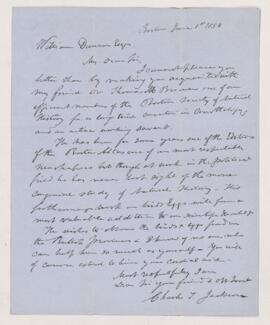 Boston June 1st 1850
William Dawson Esq
My dear Sir,
I cannot please you
better than by making you acquainted with
my friend Dr Thomas M Brewer one of our
efficient members of the Boston Society of Natural
History for a long time curator in Oornithology,
and an active working savant.
He has been for some years one of the Editors
of the Boston Atlas one of our most respectable
newspapers but though at work in the political
field he has never lost sight of the more
congenial study of Natural History. His
forthcoming work on birds Eggs will form a
most valuable addition to our
He wishes to obtain the birds & eggs found in
the British Provinces & I know of no one who
can help him so much as yourself. You will
of course extend to him your cordial aid.
Most respectfully I am
Dear Sir your friend &
Charles T. Jackson